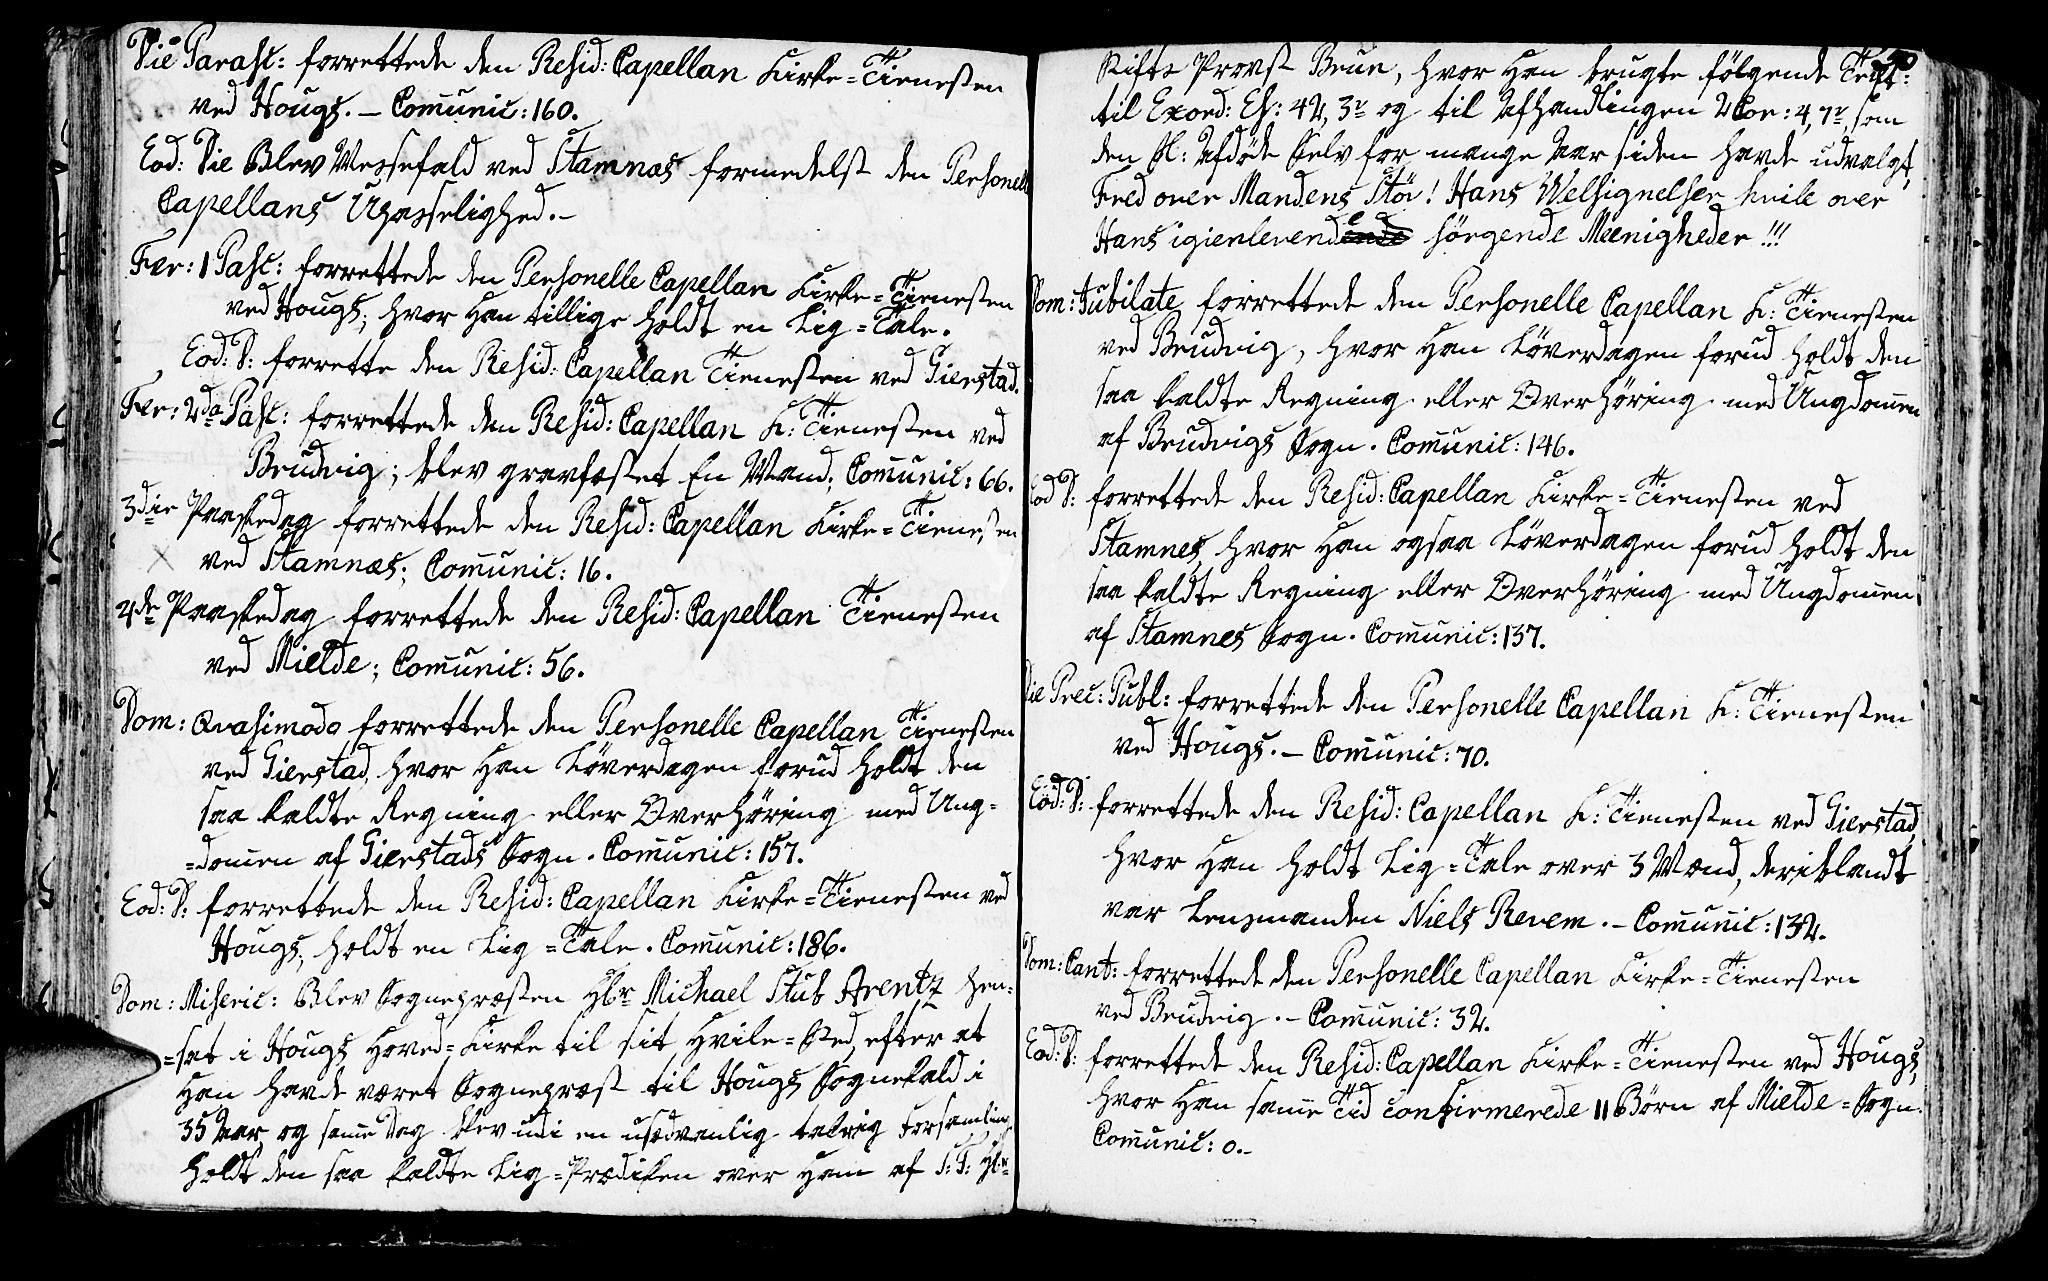 Die Parasc: forrettede den Resid: Capellan Kirke=Tienesten
ved Hougs. – Com̅unic: 160.
Eod: Die Blev Messefald ved Stamnæs formedelst den Personelle
Capellans Upasselighed. –
Fer: 1 Pasc: forrettede den Personelle Capellan Kirke=Tienesten
ved Hougs; hvor Han tillige holdt en Lig=Tale.
Eod: D: forrette den Resid: Capellan Tienesten ved Gierstad.
Fer: 2da Pasc: forrettede den Resid: Capellan K: Tienesten ved
Brudvig; blev gravfæstet En Mand; Com̅unic: 66.
3die Paaskedag forrettede den Resid: Capellan Kirke=Tienesten
ved Stamnæs; Com̅unic: 16.
4de Paaskedag forrettede den Resid: Capellan Tienesten
ved Mielde; Com̅unic: 56.
Dom: Qvasimodo forrettede den Personelle Capellan Tienesten
ved Gierstad, hvor Han Löverdagen forud holdt den
saa kaldte Regning eller Overhöring med Ung=
=dom̅en af Gierstads Sogn. Com̅unic: 157.
Eod: D: forrettede den Resid: Capellan Kirke=Tienesten ved
Hougs; holdt en Lig=Tale. Com̅unic: 186.
Dom: Miseric: Blev Sognepræsten Hr Michael Stub Arentz hen=
=sat i Hougs Hoved=Kirke til sit Hvile=Sted, efter at
Han havde været Sognepræst til Hougs Sognekald i
35 Aar, og sam̅e Dag blev udi en usædvanlig talrig Forsamling
holdt den saa kaldte Lig=Prædiken over Ham af S: T: Hr
Stifts Provst Brun, hvor Han brugte fölgende Text:
til Exord: Es: 42, 3r og til Afhandlingen 2 Cor: 4, 7r, som
den Sl: Afdöde Selv for mange Aar siden havde udvalgt,
Fred over Mandens Stöv! Hans Velsignelser hvile over
Hans igienlevende sörgende Meenigheder !!!
Dom: Jubilate forrettede den Personelle Capellan K: Tienesten
ved Brudvig, hvor Han Löverdagen forud holdt den
saa kaldte Regning eller Overhöring med Ungdom̅en
af Brudvigs Sogn. Com̅unic: 146.
Eod D: forrettede den Resid: Capellan Kirke=Tienesten ved
Stamnes, hvor Han ogsaa Löverdagen forud holdt den
saa kaldte Regning eller Overhöring med Ungdom̅en
af Stamnes Sogn. Com̅unic: 137.
Die Prec: Publ: forrettede den Personelle Capellan K: Tienesten
ved Hougs. – Com̅unic: 70.
Eod: D: forrettede den Resid: Capellan K: Tienesten ved Gierstad,
hvor Han holdt Lig=Tale over 3 Mænd, deriblandt
var Lensmanden Niels Revem. – Com̅unic: 132.
Dom: Cant: forrettede den Personelle Capellan Kirke=Tienesten
ved Brudvig. – Com̅unic: 32.
Eod: D: forrettede den Resid: Capellan Kirke=Tienesten ved Hougs,
hvor Han sam̅e Tid confirmerede 11 Börn af Mielde=Sogn.
Com̅unic: 0. –